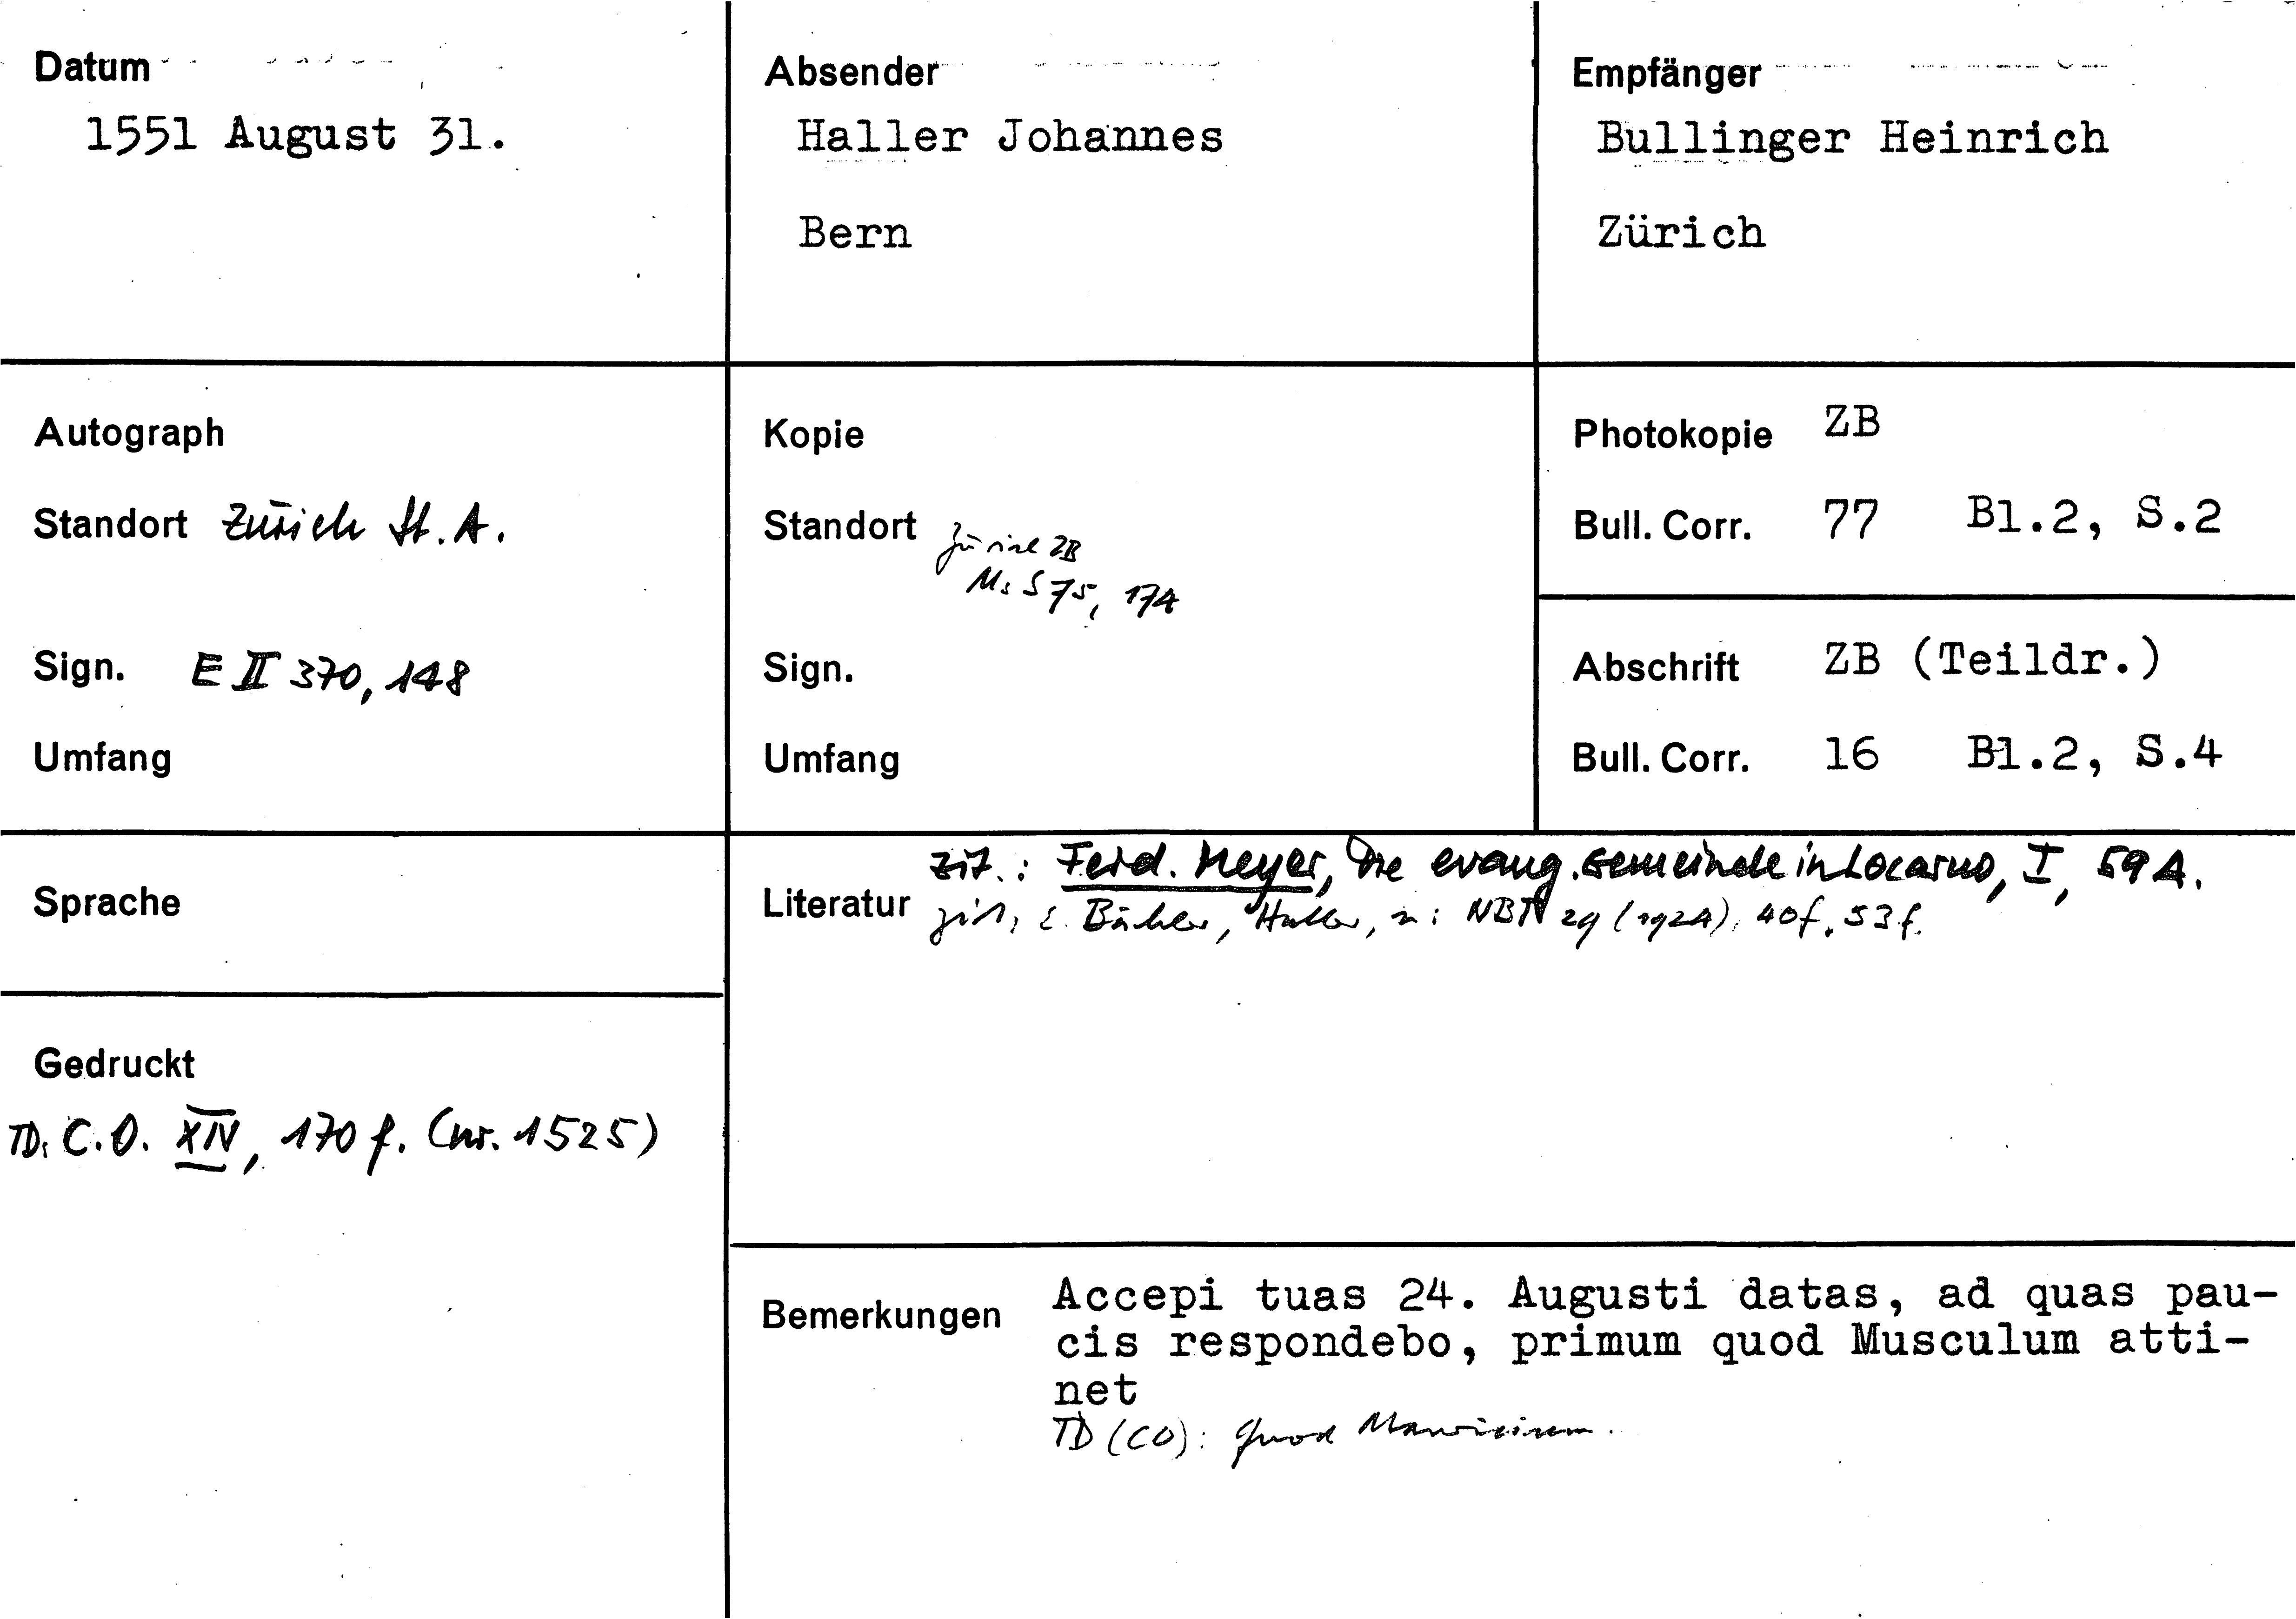 Datum
1551 August 31.
Absender
Haller Johannes
Bern
Empfänger
Bullinger Heinrich
Zürich
Autograph
Standort Zürich St. A.
Sign. E II 370, 148
Umfang
Kopie
Standort Zürich ZB
Ms S 75, 174
Sign.
Umfang
Photokopie ZB
Bull. Corr. 77 Bl.2, S.2
Abschrift ZB (Teildr.)
Bull. Corr. 16 Bl.2, S.4
Sprache
Gedruckt
TD. C.O. XIV, 170 f. (nr. 1525)
zit.: Ferd. Meyer, Die evang. Gemeinde in Locarno, I, 59 A.
Literatur zit, E. Bähler, Haller, in: NBT 29 (1924), 40f, 53f.
Bemerkungen
Accepi tuas 24. Augusti datas, ad quas pau-
cis respondebo, primum quod Musculum atti-
net
TD (CO): Quod Mauricium.